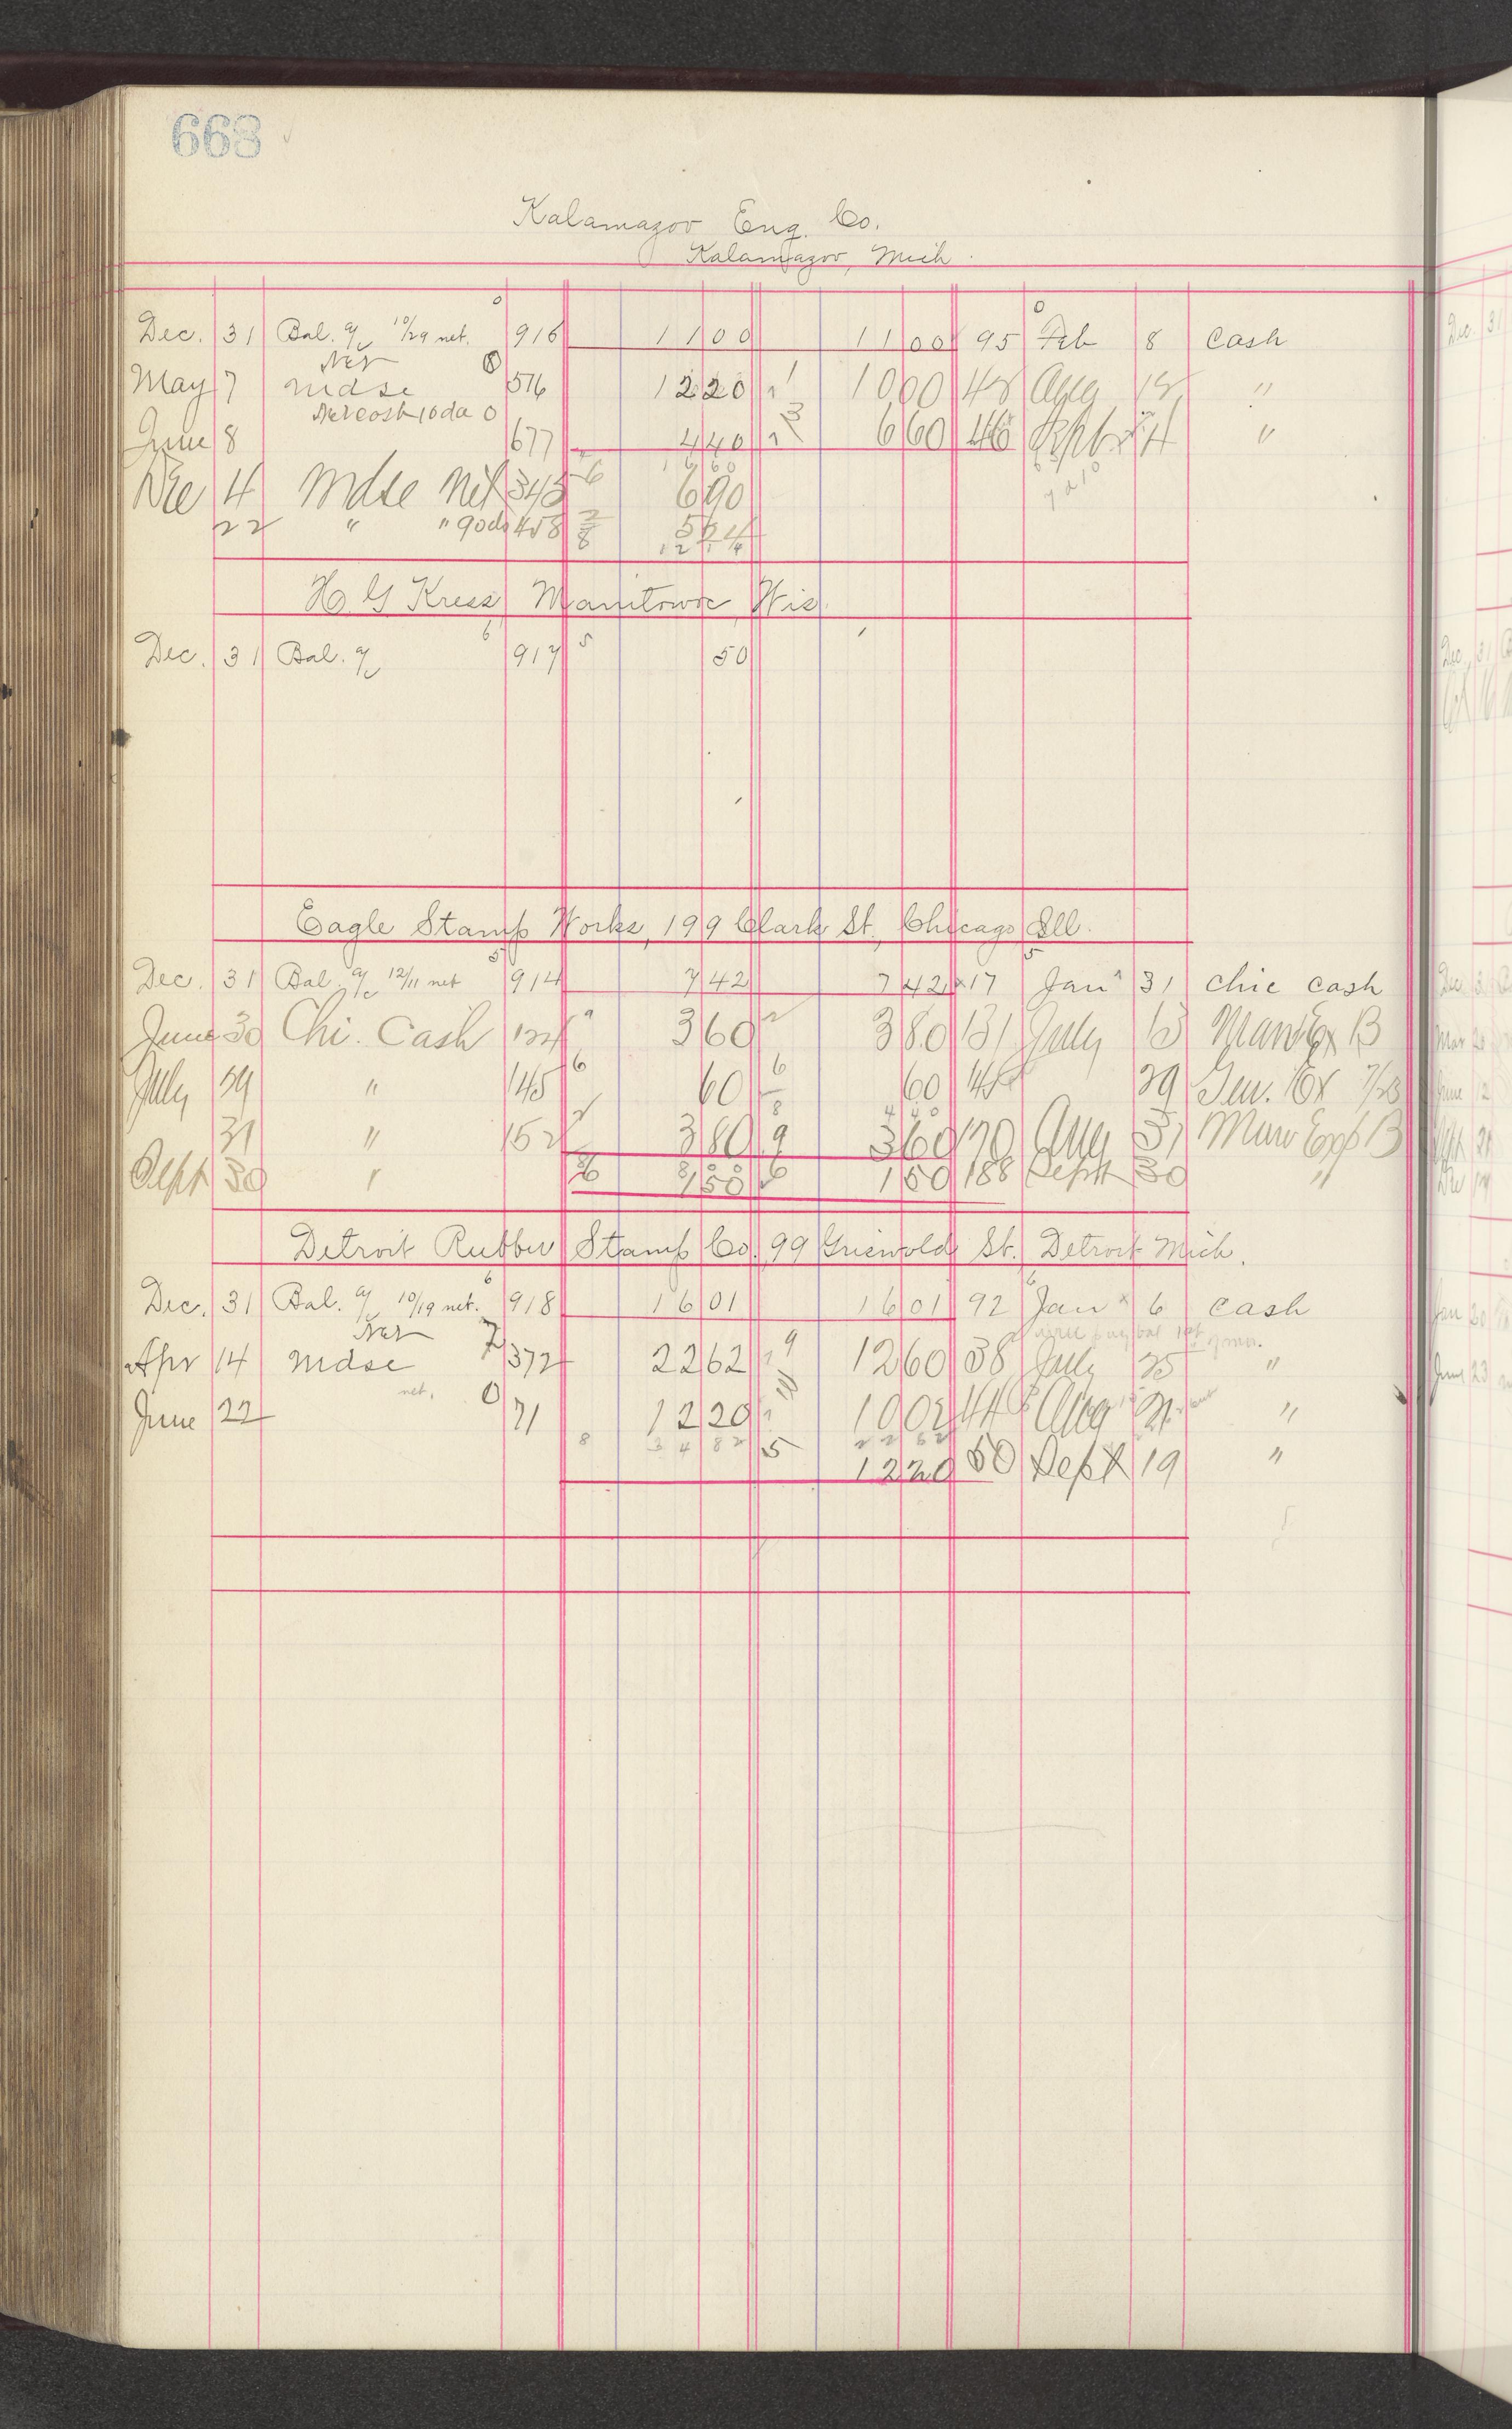 668
Kalamazoo Eng. Co.
Kalamazoo, Mich
Dec. 31 Bal. a/c 10/29 net. 0 916 11 00 11 00 95 0 Feb 8 Cash
Net
May 7 mdse 8 576 12 20 1 10 00 48 Aug 18 "
Net cash 10 da 0
June 8 677 4 40 3 6 60 46 Sept 14 "
Dec 4 Mdse Net 345 6 6 90
22 " " 90 ds 458 5 24
12 14
H. G Kress Manitowoc Wis.
Dec. 31 Bal. a/c 6 917 5 50
Eagle Stamp Works, 199 Clark St., Chicago Ill.
Dec. 31 Bal. a/c 12/11 net 5 914 7 42 7 42 17 5 Jan 31 Chic Cash
June 30 Chi. Cash 9 3 60 3 80 131 July 13 B
July 29 " 145 6 60 6 60 29 Gen. Ex 7/28
31 " 152 3 80 9 3 60 170 Aug 31 B
Sept 30 " 1 50 6 1 50 188 Sept 30 "
Detroit Rubber Stamp Co. 99 Griswold St. Detroit Mich.
Dec. 31 Bal. a/c 10/19 net. 6 918 16 01 16 01 92 6 Jan 6 Cash
Net
Apr 14 mdse 7 372 22 62 9 12 60 38 July 25 "
net. 0
June 22 71 12 20 10 02 44 Aug 21 "
8 34 82 5 12 20 50 Sept 19 "